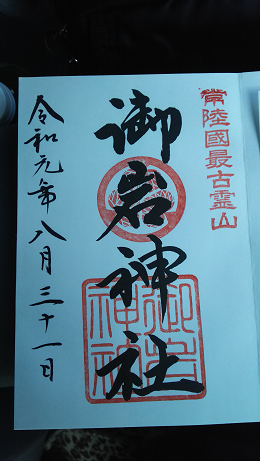 常陸國最古霊山
御岩神社
御岩
神社
令和元年八月三十一日